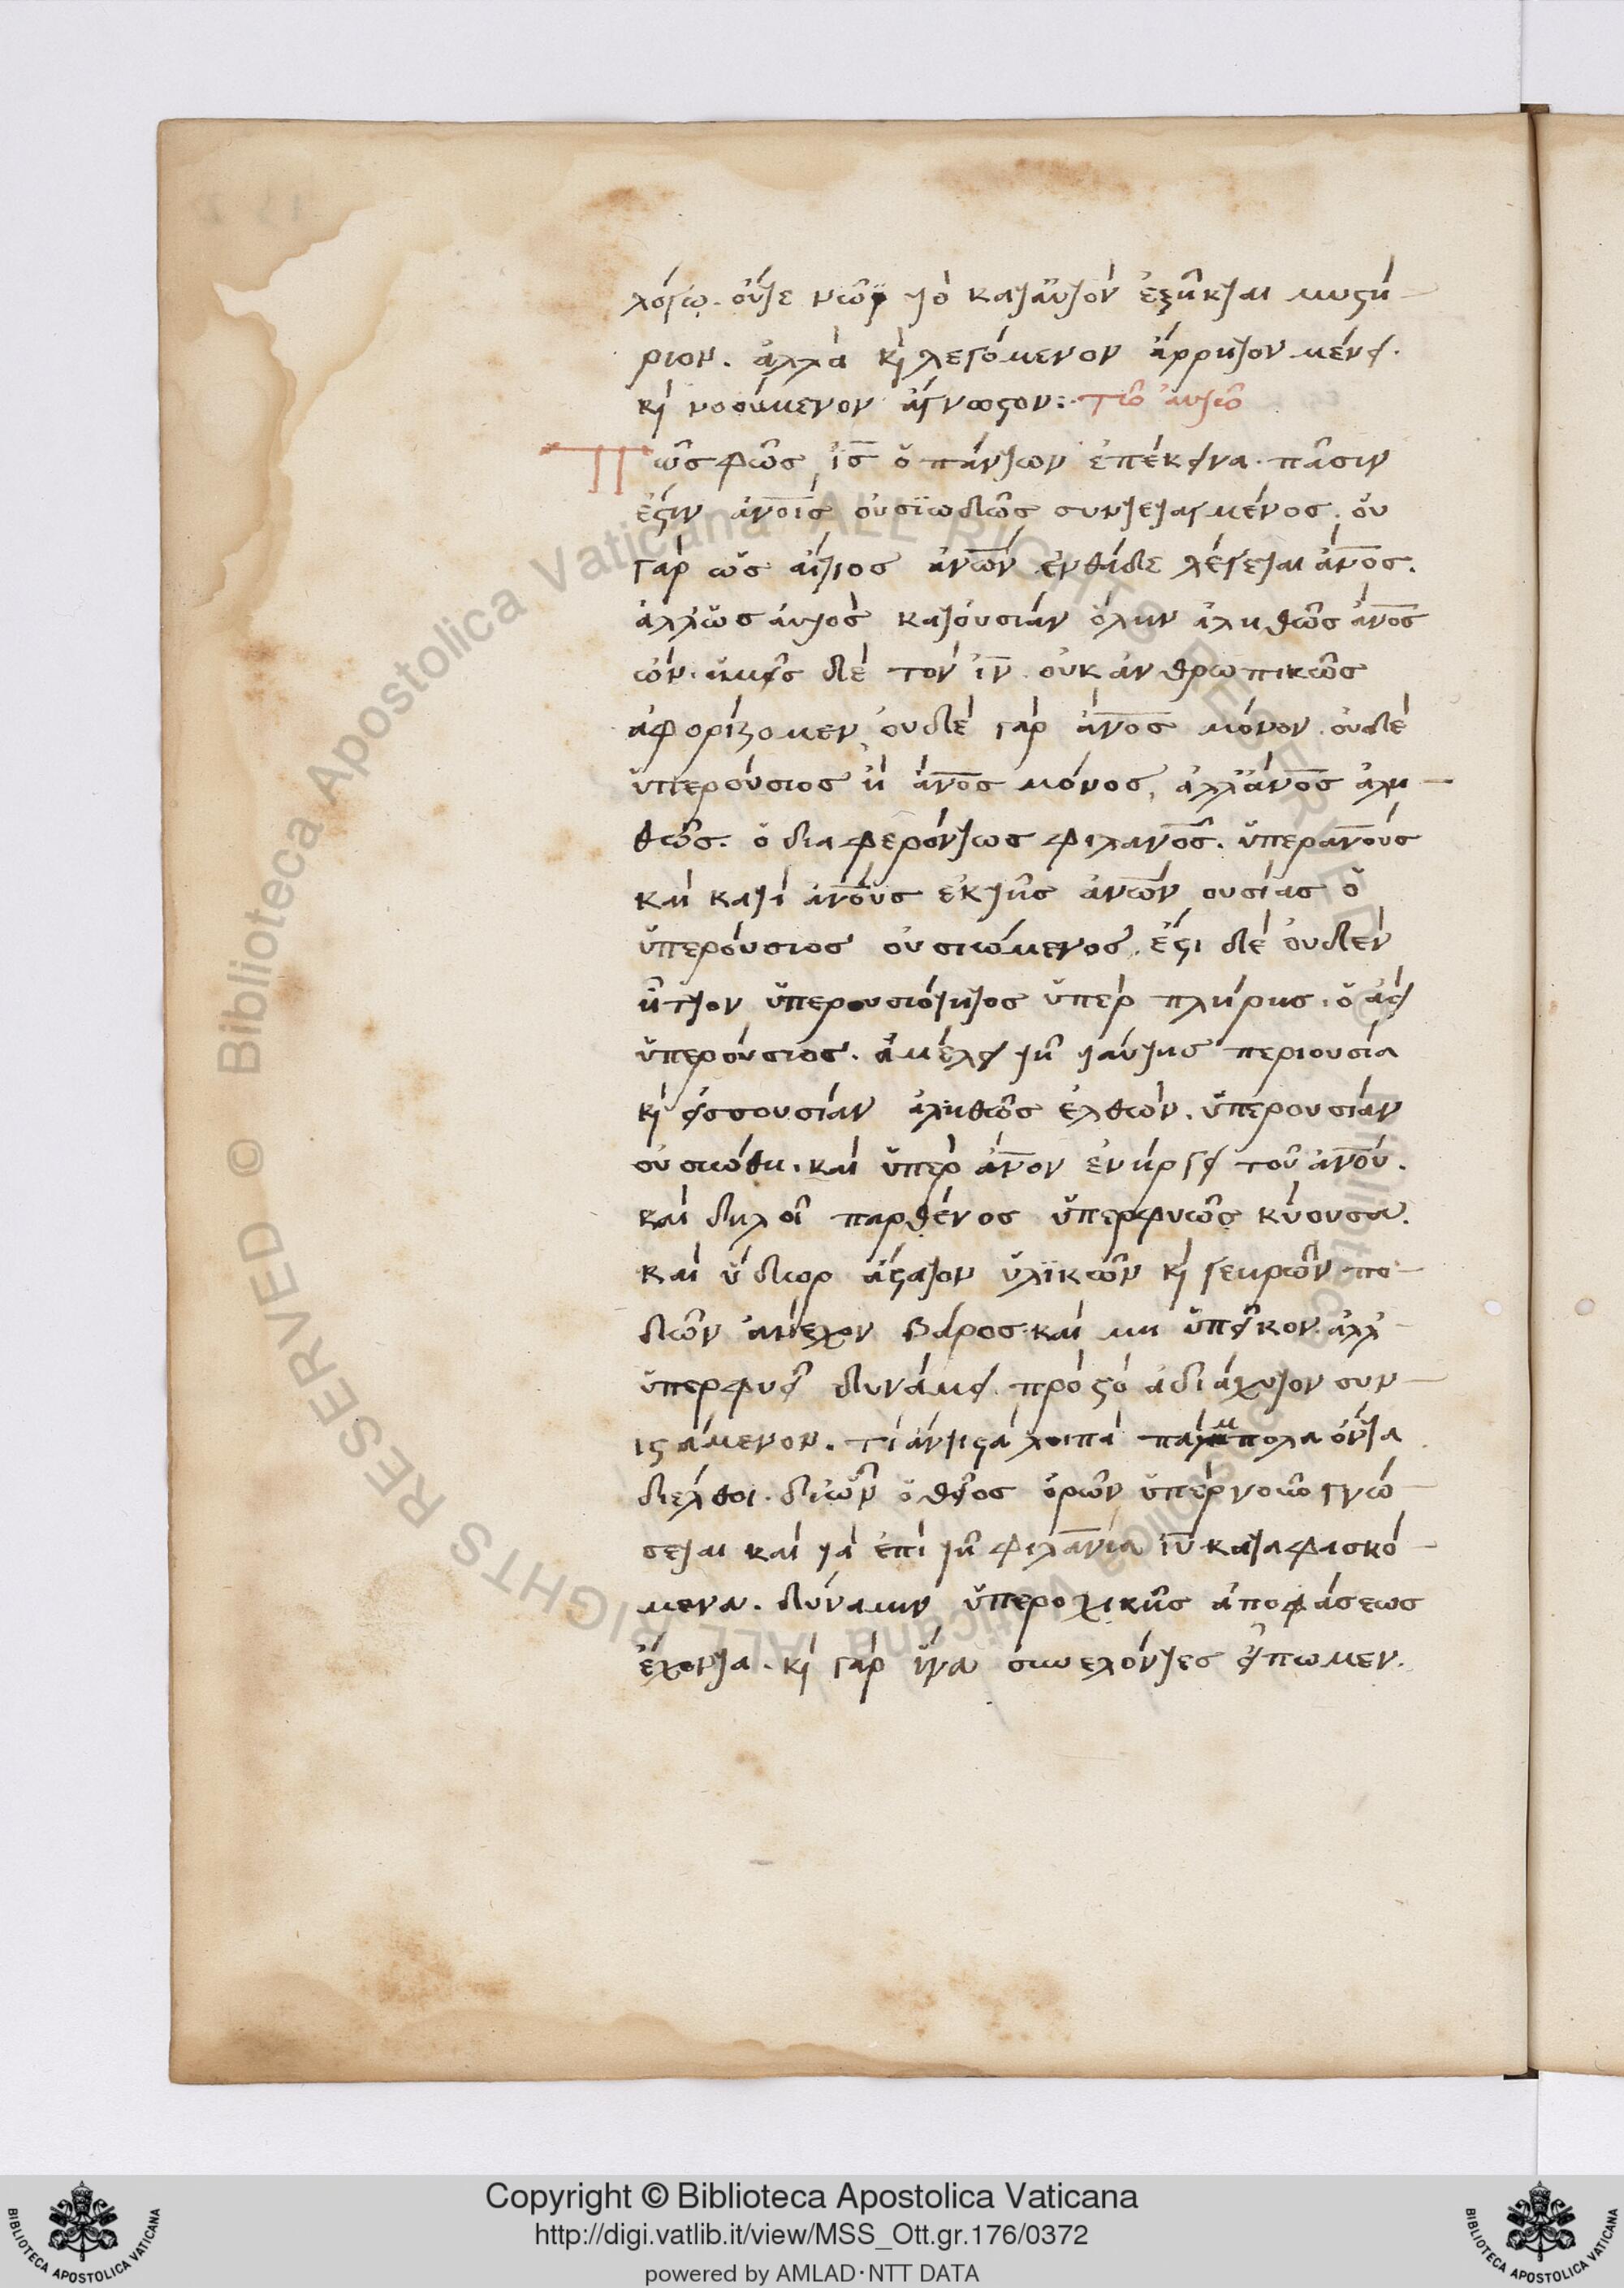 λόγω. οὔτε νῶϊ τὸ κατ' αὐτὸν ἐξῆκται μυστή
ριον. ἀλλὰ κὶ λεγόμενον ἄρρητον μένει.
κὶ νοούμενον ἄγνωστον: Τῶ αὐτῶ
Πῶς φῶς ἰς ὁ πάντων ἐπέκεινα. πᾶσιν
ἐστὶν ἀνοις οὐσϊωδῶς συντεταγμένος. οὐ
γὰρ ὡς αἴτιος ἀνων ἐνθάδε λέγεται ἄνος.
ἀλλ' ὡς αὐτὸς κατ' οὐσίαν ὅλην ἀληθῶς ἄνος
ὤν. ἡμεῖς δὲ τὸν ἰν οὐκ ἀνθρωπικῶς
ἀφορίζομεν, οὐδὲ γὰρ ἄνος μόνον. οὐδὲ
ὑπερούσιος ἢ ἄνος μόνος, ἀλλ' ἄνος ἀλη
θῶς. ὁ διαφερόντως φιλανος. ὑπερ ανους
καὶ κατὰ ἀνους ἐκ τῆς ἀνων ουσίας ὁ
ὑπερούσιος οὐσιώμενος. ἔστι δὲ οὐδὲν
ἧττον ὑπερουσιότητος ὑπὲρ πλήρης. ὁ ἀεὶ
ὑπερούσιος. ἀμέλει τῆ ταύτης περιουσία
κὶ εἰς οὐσίαν ἀληθῶς ἐλθὼν. ὑπὲρ ουσίαν
οὐσιώθη. καὶ ὑπὲρ ἄνον ἐνήργει τοῦ ἀνου.
καὶ δηλοῖ παρθένος ὑπερφυῶς κύουσα.
καὶ ὕδωρ ἄστατον ὑλϊκῶν κὶ γεηρῶν πο
δῶν ἀνέχον βάρος. καὶ μη ὑπεῖκον. ἀλλ'
ὑπερφυεῖ δυνάμει. πρὸς τὸ ἀδιάχυτον συν
ιστάμενον. τί ἄν τις τὰ λοιπὰ πάμπολα ὄντα
διέλθοι. δι' ὧν ὁ θείως ὁρῶν ὑπὲρ νοῦν γνώ
σεται καὶ τὰ ἐπὶ τῆ φιλανία ἰυ καταφασκό
μενα. δύναμιν ὑπεροχικῆς ἀποφάσεως
ἔχοντα. κὶ γὰρ ἵνα συνελόντες εἴπωμεν.
Copyright © Biblioteca Apostolica Vaticana
http://digi.vatlib.it/view/MSS_Ott.gr.176/0372
powered by AMLAD·NTT DATA
© Biblioteca Apostolica Vaticana ALL RIGHTS RESERVED
BIBLIOTECA APOSTOLICA VATICANA
BIBLIOTECA APOSTOLICA VATICANA